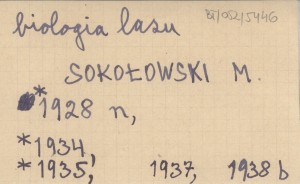 BR/052/5446
biologia lasu
SOKOŁOWSKI M.
*1928 n,
*1934,
*1935, 1937, 1938 b